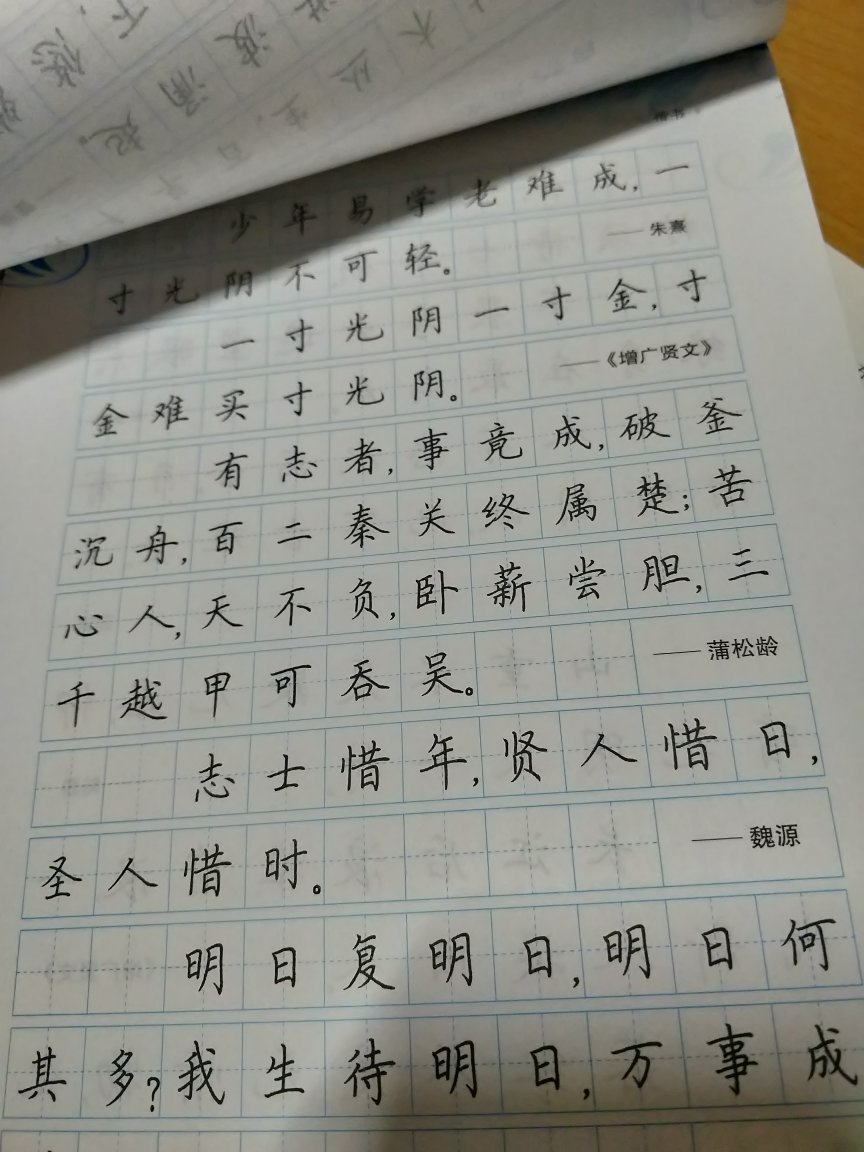 楷书
少年易学老难成，一
寸光阴不可轻。 ——朱熹
一寸光阴一寸金，寸
金难买寸光阴。 ——《增广贤文》
有志者，事竟成，破釜
沉舟，百二秦关终属楚；苦
心人，天不负，卧薪尝胆，三
千越甲可吞吴。 ——蒲松龄
志士惜年，贤人惜日，
圣人惜时。 ——魏源
明日复明日，明日何
其多？我生待明日，万事成